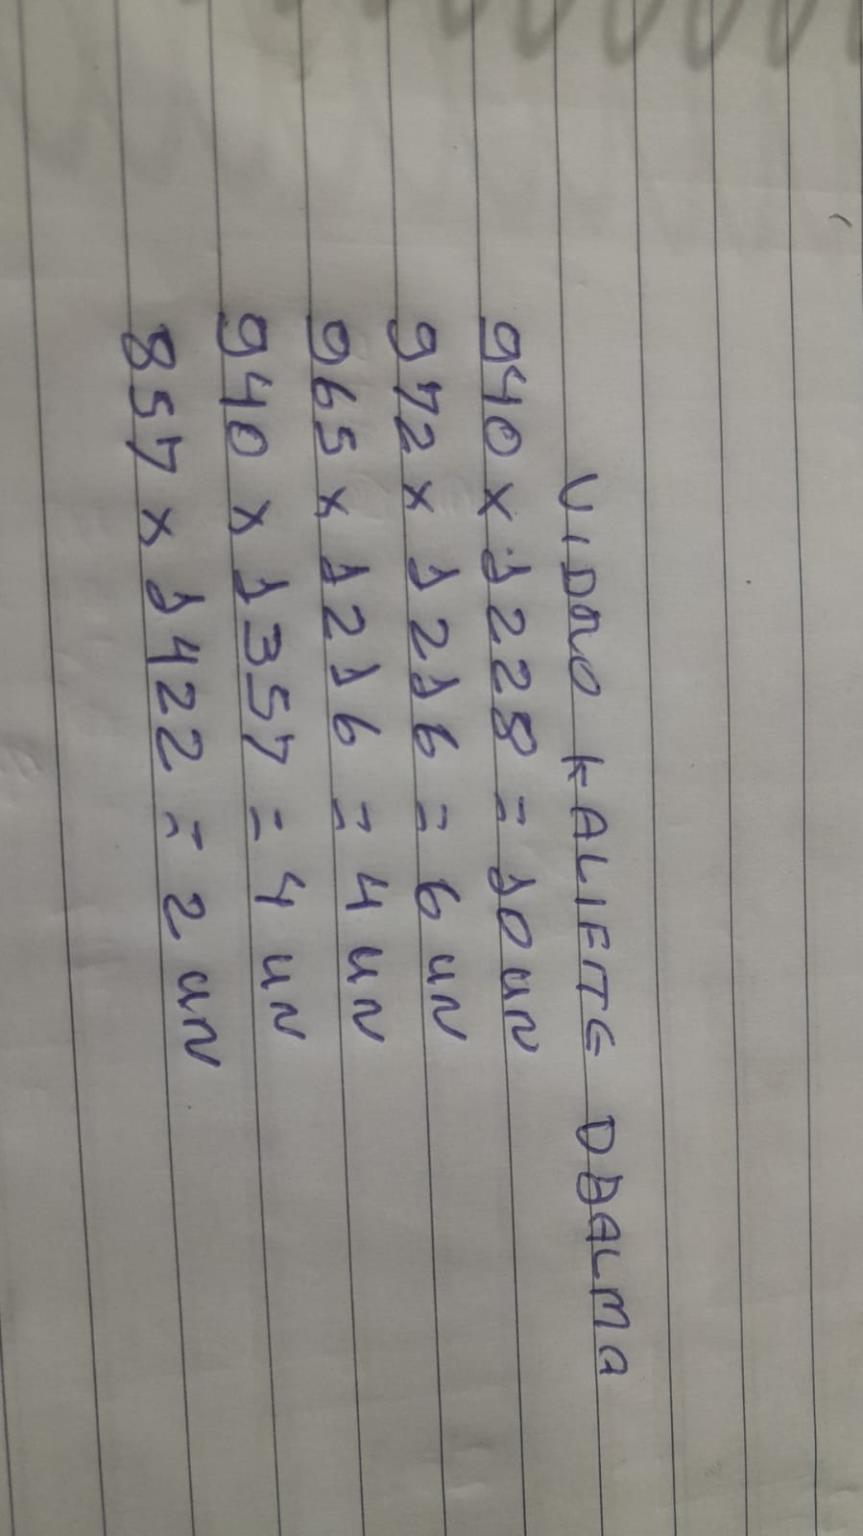 VIDRO KALIFTE DBALMA
940 x 1228 = 10 un
972 x 1216 = 6 un
965 x 1216 = 4 un
940 x 1357 = 4 un
857 x 1422 = 2 un